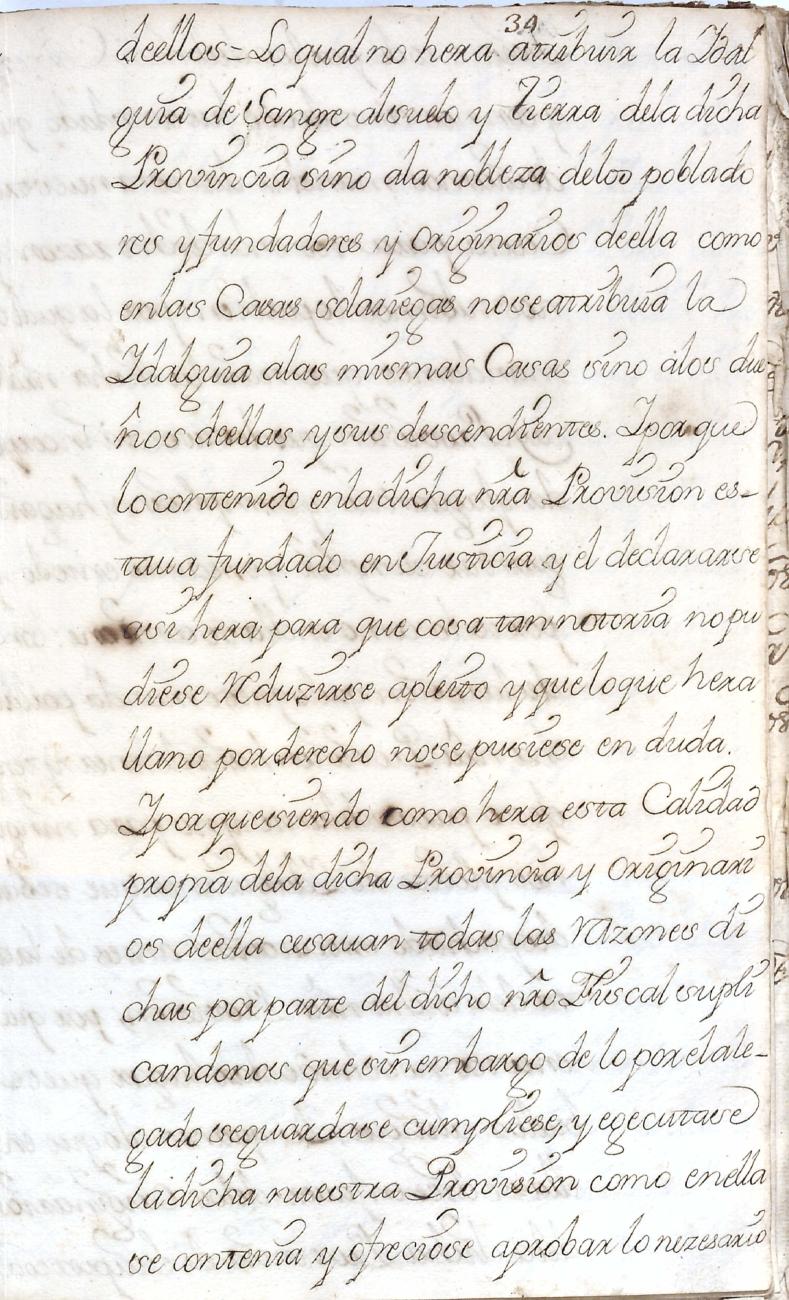 34
deellos = Lo qual no hera atribuir la Idal
guia de Sangre alsuelo y tierra dela dicha
Provincia sino ala nobleza delos poblado
res y fundadores y originarios deella como
enlas Casas solariegas nose atribuia la
Idalguia alas mismas Casas sino alos due
ños deellas y sus descendientes. Iporque
lo contenido enla dicha nrã Provision es-
taua fundado en Justicia y el declararse
asi hera para que cosa tan notoria no pu
diese Reduzirse apleito y que lo que hera
llano por derecho nose pusiese en duda.
Iporque siendo como hera esta Calidad
propia dela dicha Provincia y originari
os deella cesauan todas las Razones di
chas por parte del dicho nrõ Fiscal supli
candonos que sin embargo de lo por el ale-
gado se guardase cumpliese, y egecutase
la dicha nuestra Provision como enella
se contenia y ofreciose aprobar lo nezesario